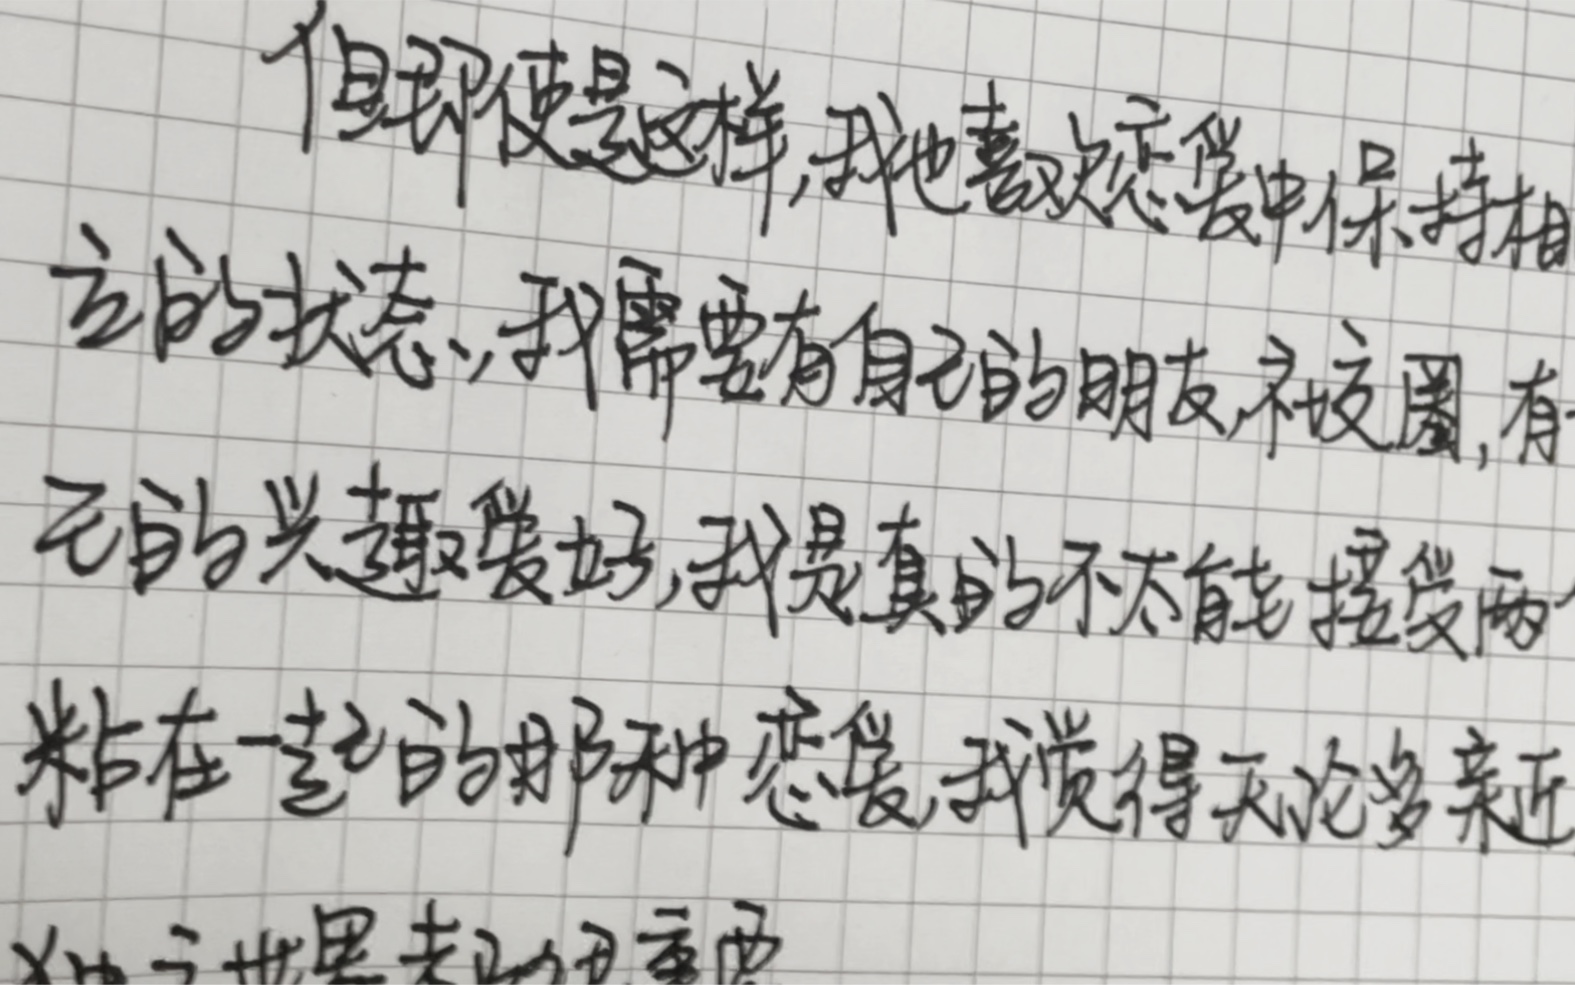 但即使是这样,我也喜欢恋爱中保持相
立的状态,我需要有自己的朋友,社交圈,有
己的兴趣爱好,我是真的不太能接受两
粘在一起的那种恋爱,我觉得无论多亲近
独立世界都很重要